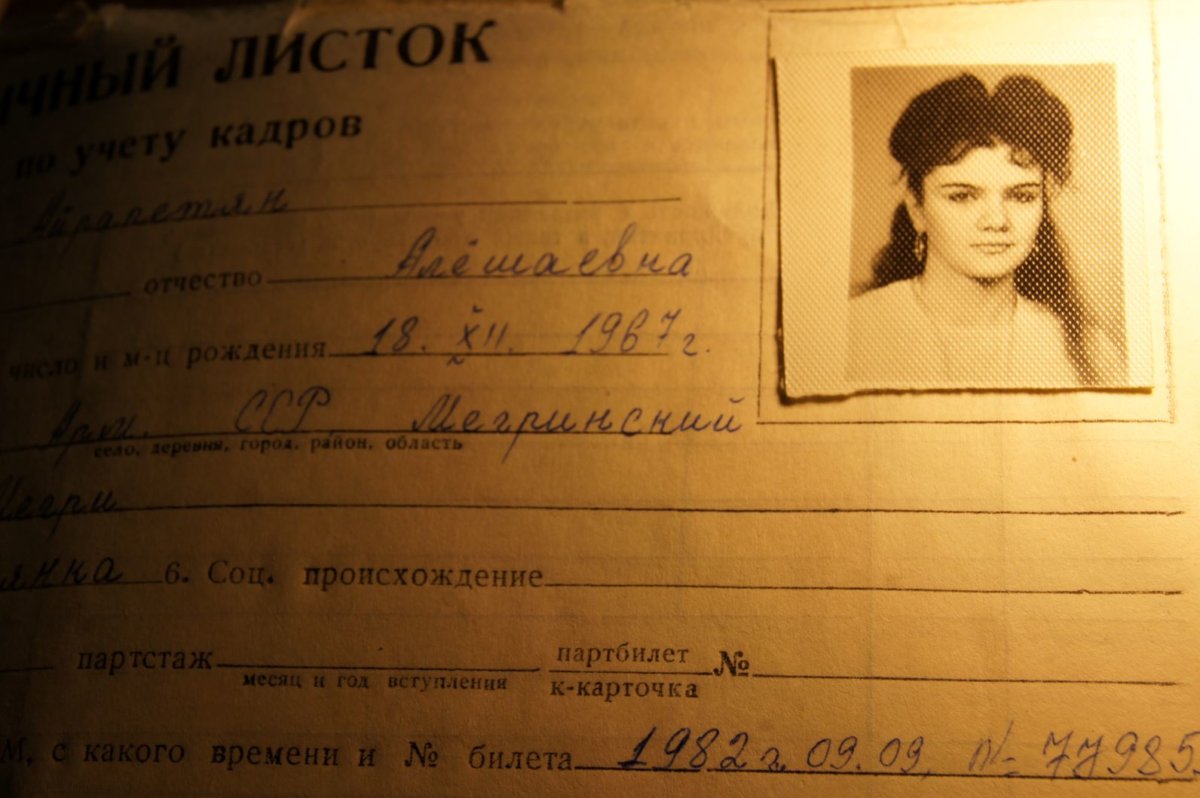 ичный ЛИСТОК
по учету кадров
Айрапетян
отчество Алёшаевна
число и м-ц рождения 18. XII. 1967 г.
Арм. ССР Мегринский
село, деревня, город, район, область
Мегри
янка 6. Соц. происхождение
партстаж партбилет №
месяц и год вступления к-карточка
М, с какого времени и № билета 1982 г. 09.09. № 77985